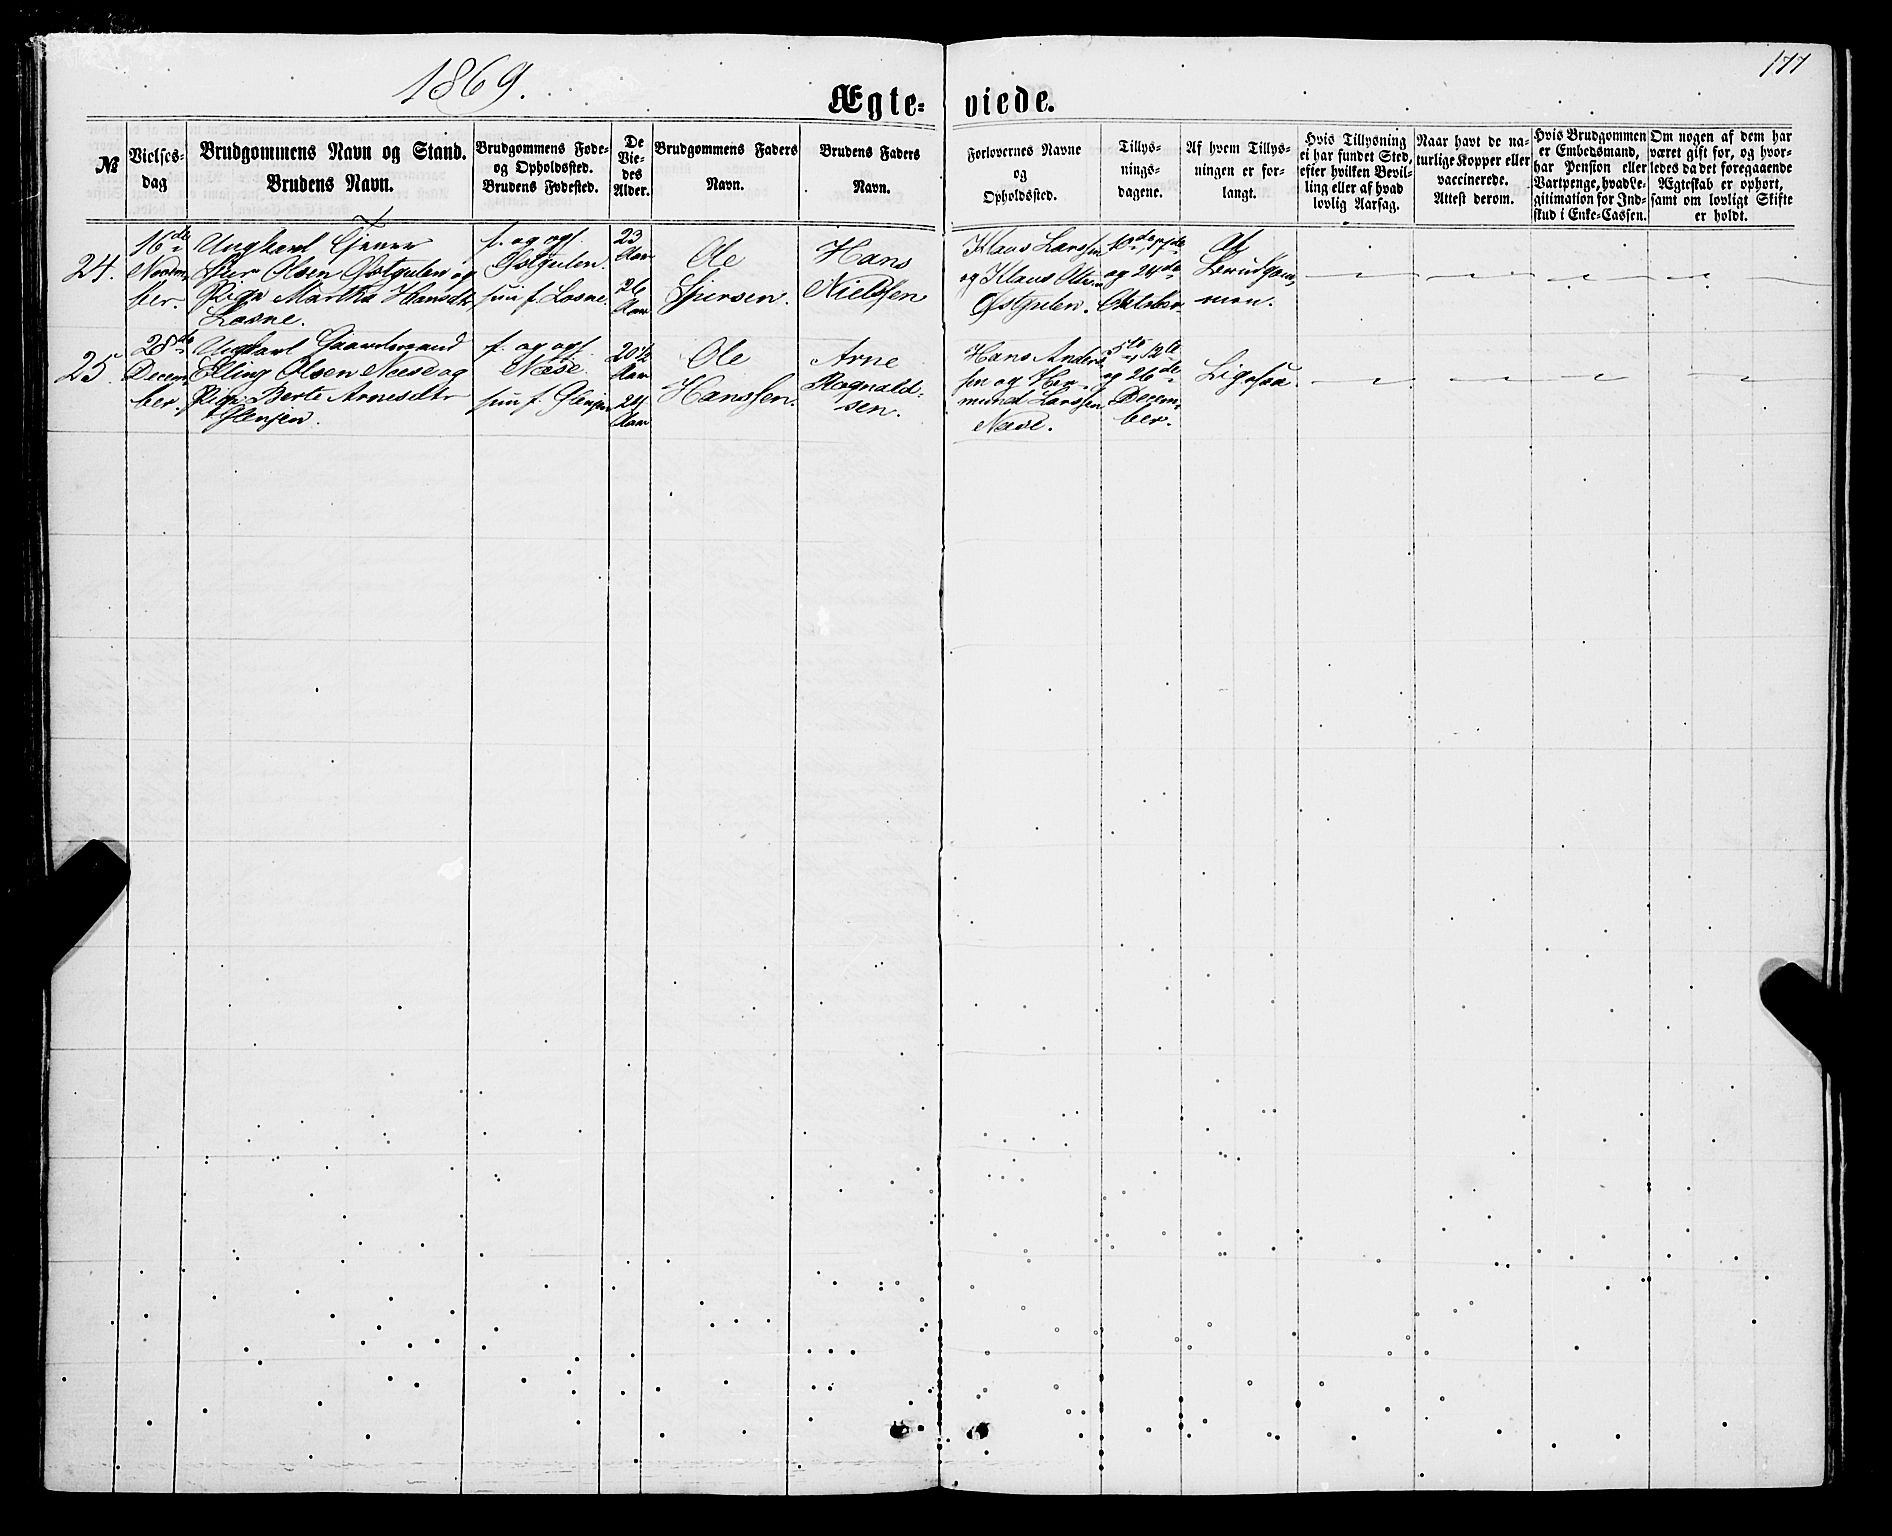 1869.
177
Ægte- viede.
№
Vielses-
dag
Brudgommens Navn og Stand.
Brudens Navn.
Brudgommens Føde-
og Opholdssted.
Brudens Fødested.
De
Vie-
des
Alder.
Brudgommens Faders
Navn.
Brudens Faders
Navn.
Forlovernes Navne
og
Opholdssted.
Tillys-
nings-
dagene.
Af hvem Tillys-
ningen er for-
langt.
Hvis Tillysning
ei har fundet Sted,
efter hvilken Bevil-
ling eller af hvad
lovlig Aarsag.
Naar havt de na-
turlige Kopper eller
vaccinerede.
Attest derom.
Hvis Brudgommen
er Embedsmand,
har Pension eller
Vartpenge, hvad Le-
gitimation for Ind-
skud i Enke-Cassen.
Om nogen af dem har
været gift før, og hvor-
ledes da det foregaaende
Ægteskab er ophørt,
samt om lovligt Skifte
er holdt.
24.
16de
Novem-
ber.
Ungkarl
Olsen Østgulen og
Pige Martha Hansdtr
Losne.
f. og opf.
Østgulen.
hun f. Losne.
23
Aar
26
Aar
Ole
Hans
Nielssen
Klaus Larssen
og Klaus Olsen
Østgulen.
10de, 17de
og 24de
Oktober.
Af
Brudgom-
men.
25.
28de
Decem-
ber.
Ungkarl Gaardmand
Elling Olsen Næse og
Pige Berte Arnesdtr
Glenjen.
f. og opf.
Næse.
hun f. Glenjen
20½
Aar
24
Aar
Ole
Hanssen.
Arne
Rognald-
sen.
Hans Anders-
sen og Her-
mund Larssen
Næse.
5te, 12te
og 26de
Decem-
ber.
Ligesaa.